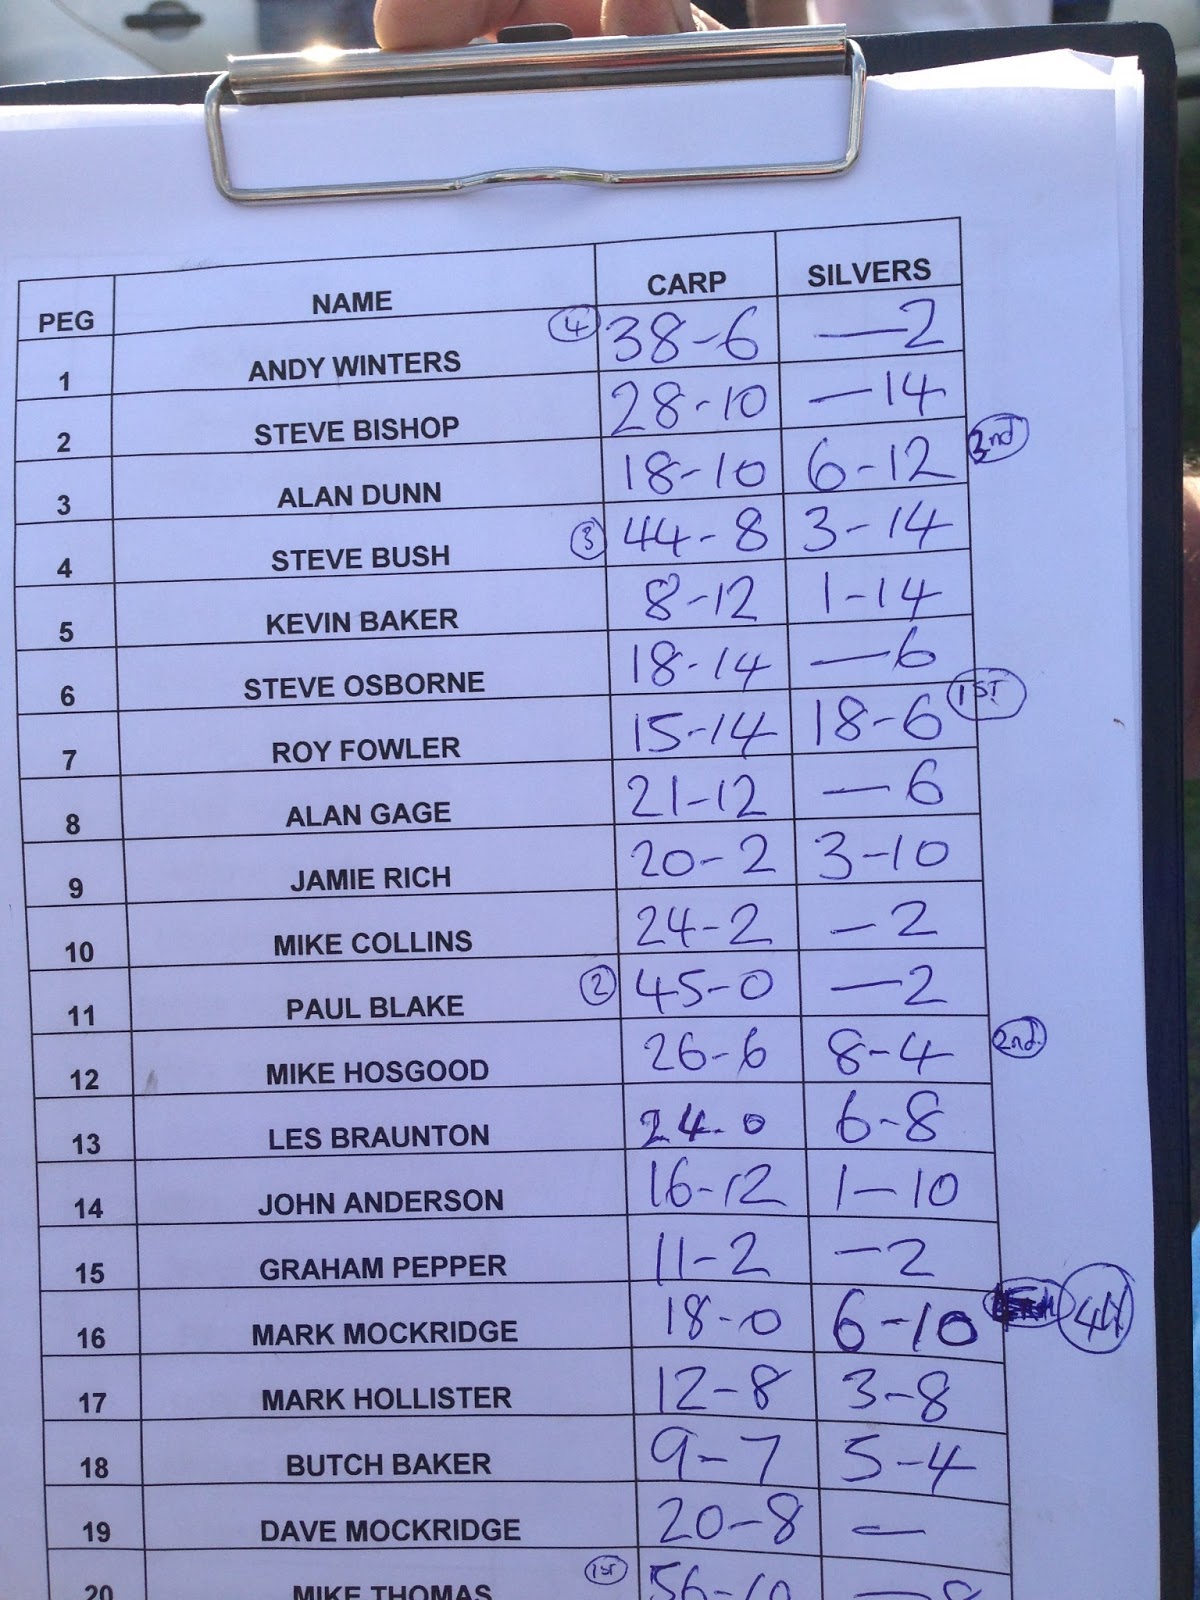 PEG NAME CARP SILVERS
1 ANDY WINTERS 4 38-6 —2
2 STEVE BISHOP 28-10 —14
3 ALAN DUNN 18-10 6-12 3nd
4 STEVE BUSH 3 44-8 3-14
5 KEVIN BAKER 8-12 1-14
6 STEVE OSBORNE 18-14 —6
7 ROY FOWLER 15-14 18-6 1ST
8 ALAN GAGE 21-12 —6
9 JAMIE RICH 20-2 3-10
10 MIKE COLLINS 24-2 —2
11 PAUL BLAKE 2 45-0 —2
12 MIKE HOSGOOD 26-6 8-4 2nd
13 LES BRAUNTON 24-0 6-8
14 JOHN ANDERSON 16-12 1-10
15 GRAHAM PEPPER 11-2 —2
16 MARK MOCKRIDGE 18-0 6-10 4th
17 MARK HOLLISTER 12-8 3-8
18 BUTCH BAKER 9-7 5-4
19 DAVE MOCKRIDGE 20-8 —
20 MIKE THOMAS 1ST 56-10